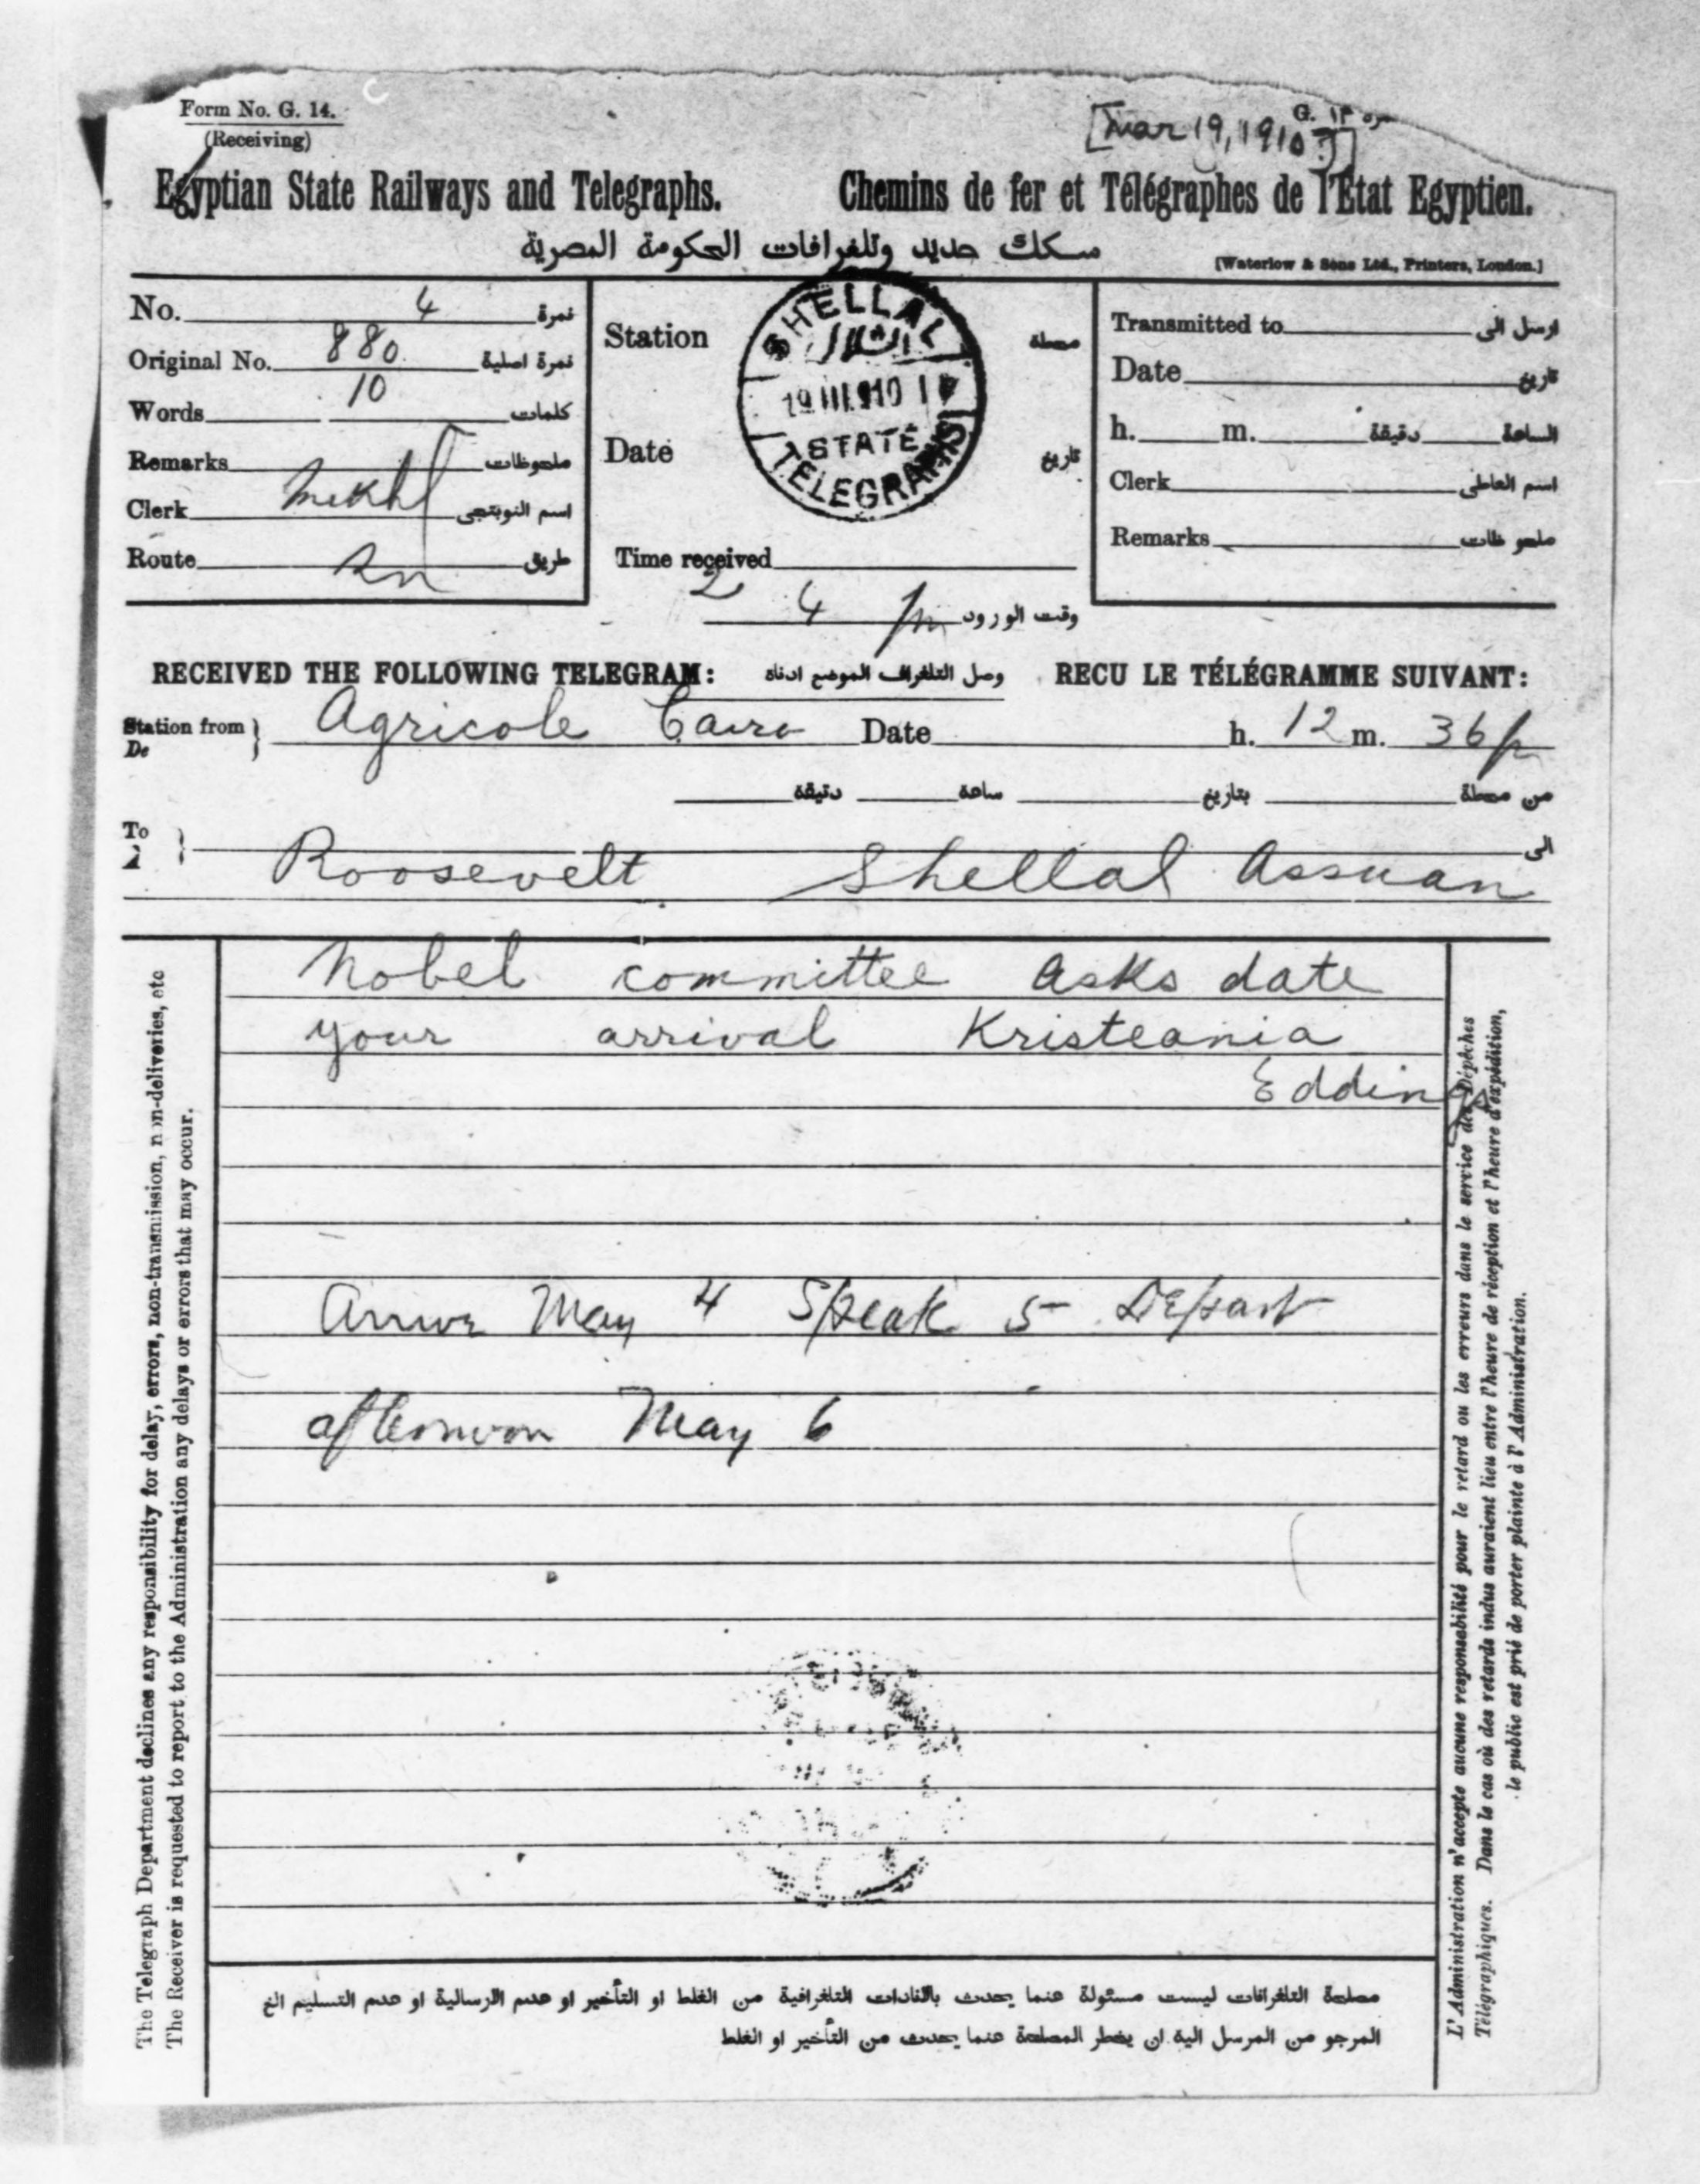 Form No. G. 14.
(Receiving)
[Mar 19, 1910?]
نمره G. ١٤
Egyptian State Railways and Telegraphs.
Chemins de fer et Télégraphes de l'Etat Egyptien.
سكك حديد وتلغرافات الحكومة المصرية
[Waterlow & Sons Ltd., Printers, London.]
No. 4 نمرة
Original No. 880 نمرة اصلية
Words 10 كلمات
Remarks ملحوظات
Clerk اسم النوبتجى
Route طريق
Station محطة
SHELLAL
الشلال
19 III 910
STATE
TELEGRAPHS
Date تاريخ
Time received
2 4 pm وقت الورود
Transmitted to ارسل الى
Date تاريخ
h. m. دقيقة الساعة
Clerk اسم العاطى
Remarks ملحو ظات
RECEIVED THE FOLLOWING TELEGRAM: وصل التلغراف الموضح ادناه RECU LE TÉLÉGRAMME SUIVANT:
Station from Agricole Cairo Date h. 12 m. 36 p
De
من محطة بتاريخ ساعة دقيقة
To الى
Roosevelt Shellal Assuan
Nobel committee asks date
your arrival Kristeania
Eddings
Arrive May 4 Speak 5 Depart
afternoon May 6
The Telegraph Department declines any responsibility for delay, errors, non-transmission, non-deliveries, etc
The Receiver is requested to report to the Administration any delays or errors that may occur.
L'Administration n'accepte aucune responsabilité pour le retard ou les erreurs dans le service des Dépêches
Télégraphiques. Dans le cas où des retards indus auraient lieu entre l'heure de réception et l'heure d'expédition,
le public est prié de porter plainte à l'Administration.
مصلحة التلغرافات ليست مسئولة عنما يحدث بالنادات التلغرافية من الغلط او التأخير او عدم الارسالية او عدم التسليم الخ
المرجو من المرسل اليه ان يخطر المصلحة عنما يحدث من التأخير او الغلط